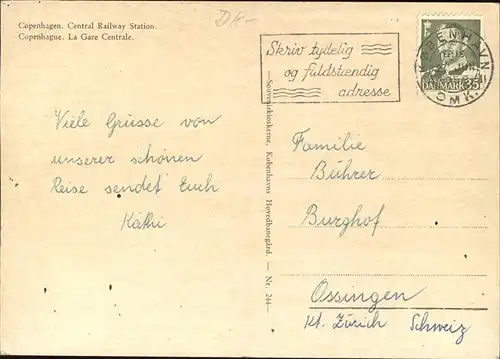 Copenhagen. Central Railway Station.
Copenhague. La Gare Centrale.
DK-
Skriv tydelig
og fuldstændig
adresse
KØBENHAVN
OMK.
DANMARK 35
Viele Grüsse von
unserer schönen
Reise sendet Euch
Käthi
—Souvenirkioskerne, Københavns Hovedbanegård. — Nr. 244—
Familie
Bührer
Burghof
Ossingen
Kt. Zürich Schweiz